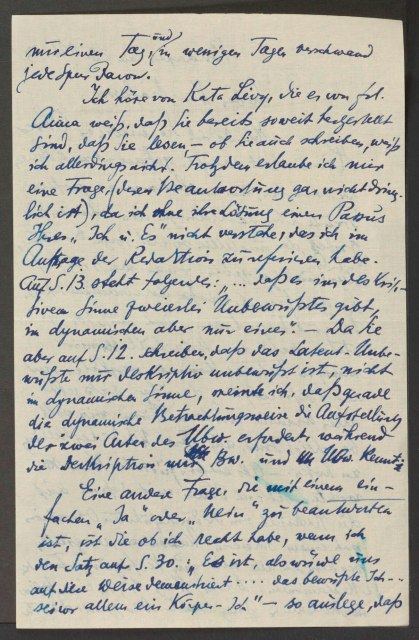 nur einen Tag, und in wenigen Tagen verschwand
jede Spur davon.
Ich höre von Kata Lévy, die es von Frl.
Anna weiß, daß Sie bereits soweit hergestellt
sind, daß Sie lesen – ob Sie auch schreiben, weiß
ich allerdings nicht. Trotzdem erlaube ich mir
eine Frage, (deren Beantwortung gar nicht dring-
lich ist), da ich ohne ihre Lösung einen Passus
Ihres „Ich u. Es" nicht verstehe, das ich im
Auftrage der Redaktion zu referieren habe.
Auf S. 13. steht folgendes: „... daß es im deskrip-
tiven Sinne zweierlei Unbewußtes gibt,
im dynamischen aber nur eines". – Da Sie
aber auf S. 12. schreiben, daß das Latent-Unbe-
wußte nur deskriptiv unbewußt ist, nicht
im dynamischen Sinne, meinte ich, daß gerade
die dynamische Betrachtungsweise die Aufstellung
der zwei Arten des Ubw. erfordert, während
die Deskription nur Bw. und Ubw. kennt.
Eine andere Frage, die mit einem ein-
fachen „Ja" oder „Nein" zu beantworten
ist, ist die ob ich recht habe, wenn ich
den Satz auf S. 30. „Es ist, als würde uns
auf diese Weise demonstriert .... das bewußte Ich –
sei vor allem ein Körper-Ich" – so auslege, daß